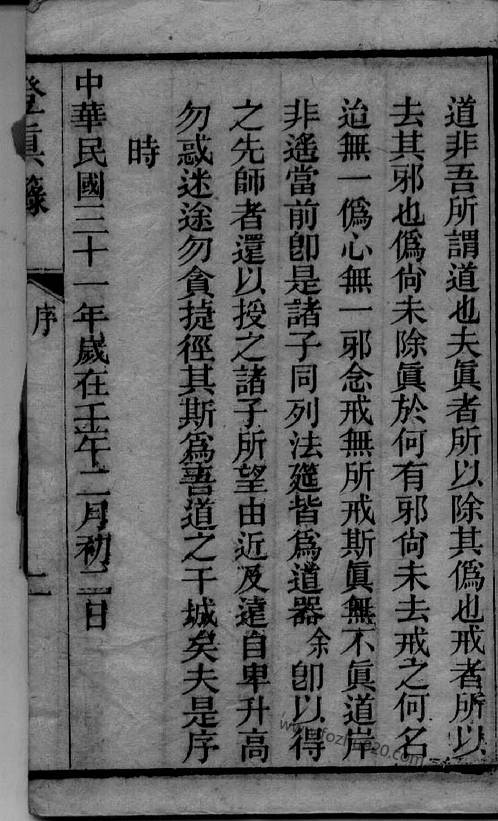 道非吾所謂道也夫眞者所以除其僞也戒者所以
去其邪也僞尙未除眞於何有邪尙未去戒之何名
迨無一僞心無一邪念戒無所戒斯眞無不眞道岸
非遙當前卽是諸子同列法筵皆爲道器余卽以得
之先師者還以授之諸子所望由近及遠自卑升高
勿惑迷途勿貪捷徑其斯爲吾道之干城矣夫是序
時
中華民國三十一年歲在壬午二月初二日
登眞籙
序
二